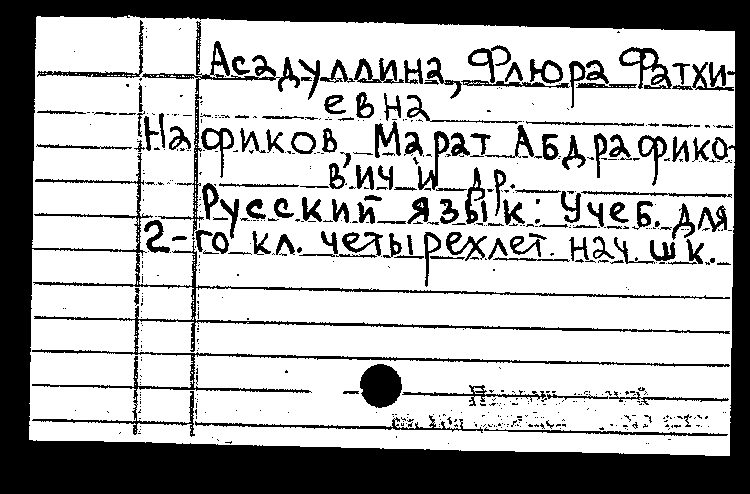 Асадуллина, Флюра Фатхи-
евна
Нафиков, Марат Абдрафико-
вич и др.
Русский язык: Учеб. для
2-го кл. четырехлет. нач. шк.